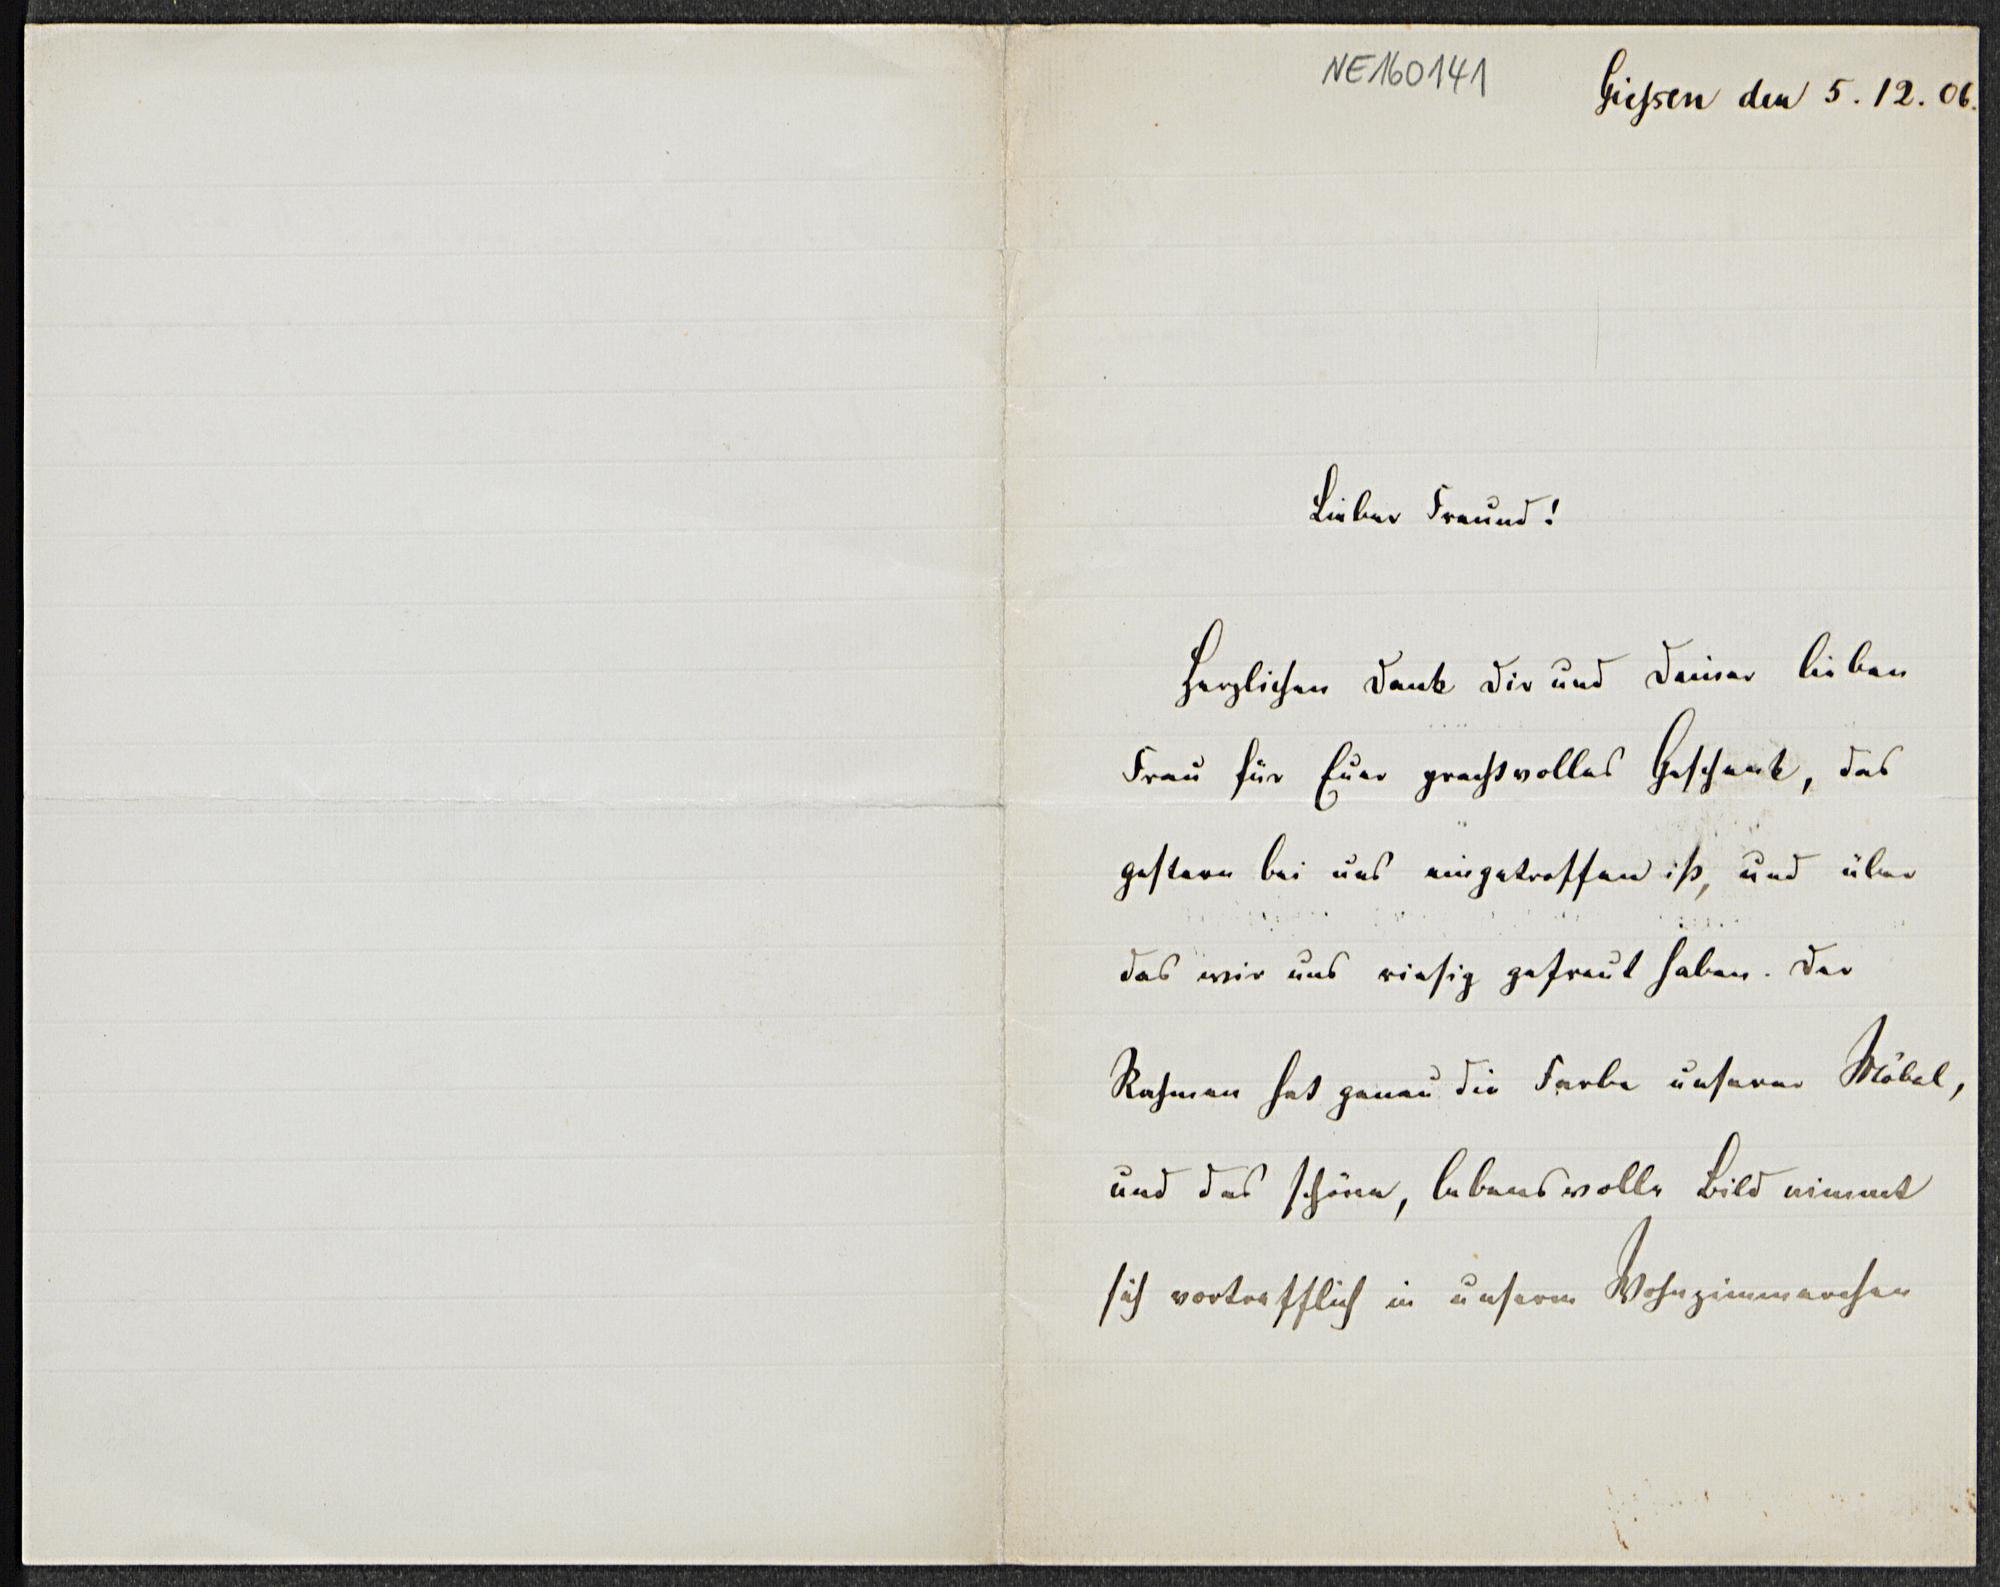 NE160141
Giessen den 5. 12. 06.
Lieber Freund!
Herzlichen Dank Dir und Deiner lieben
Frau für Euer prachtvolles Geschenk, das
gestern bei uns eingetroffen ist, und über
das wir uns riesig gefreut haben. Der
Rahmen hat genau die Farbe unserer Möbel,
und das schöne, lebensvolle Bild nimmt
sich vortrefflich in unserem Wohnzimmerchen